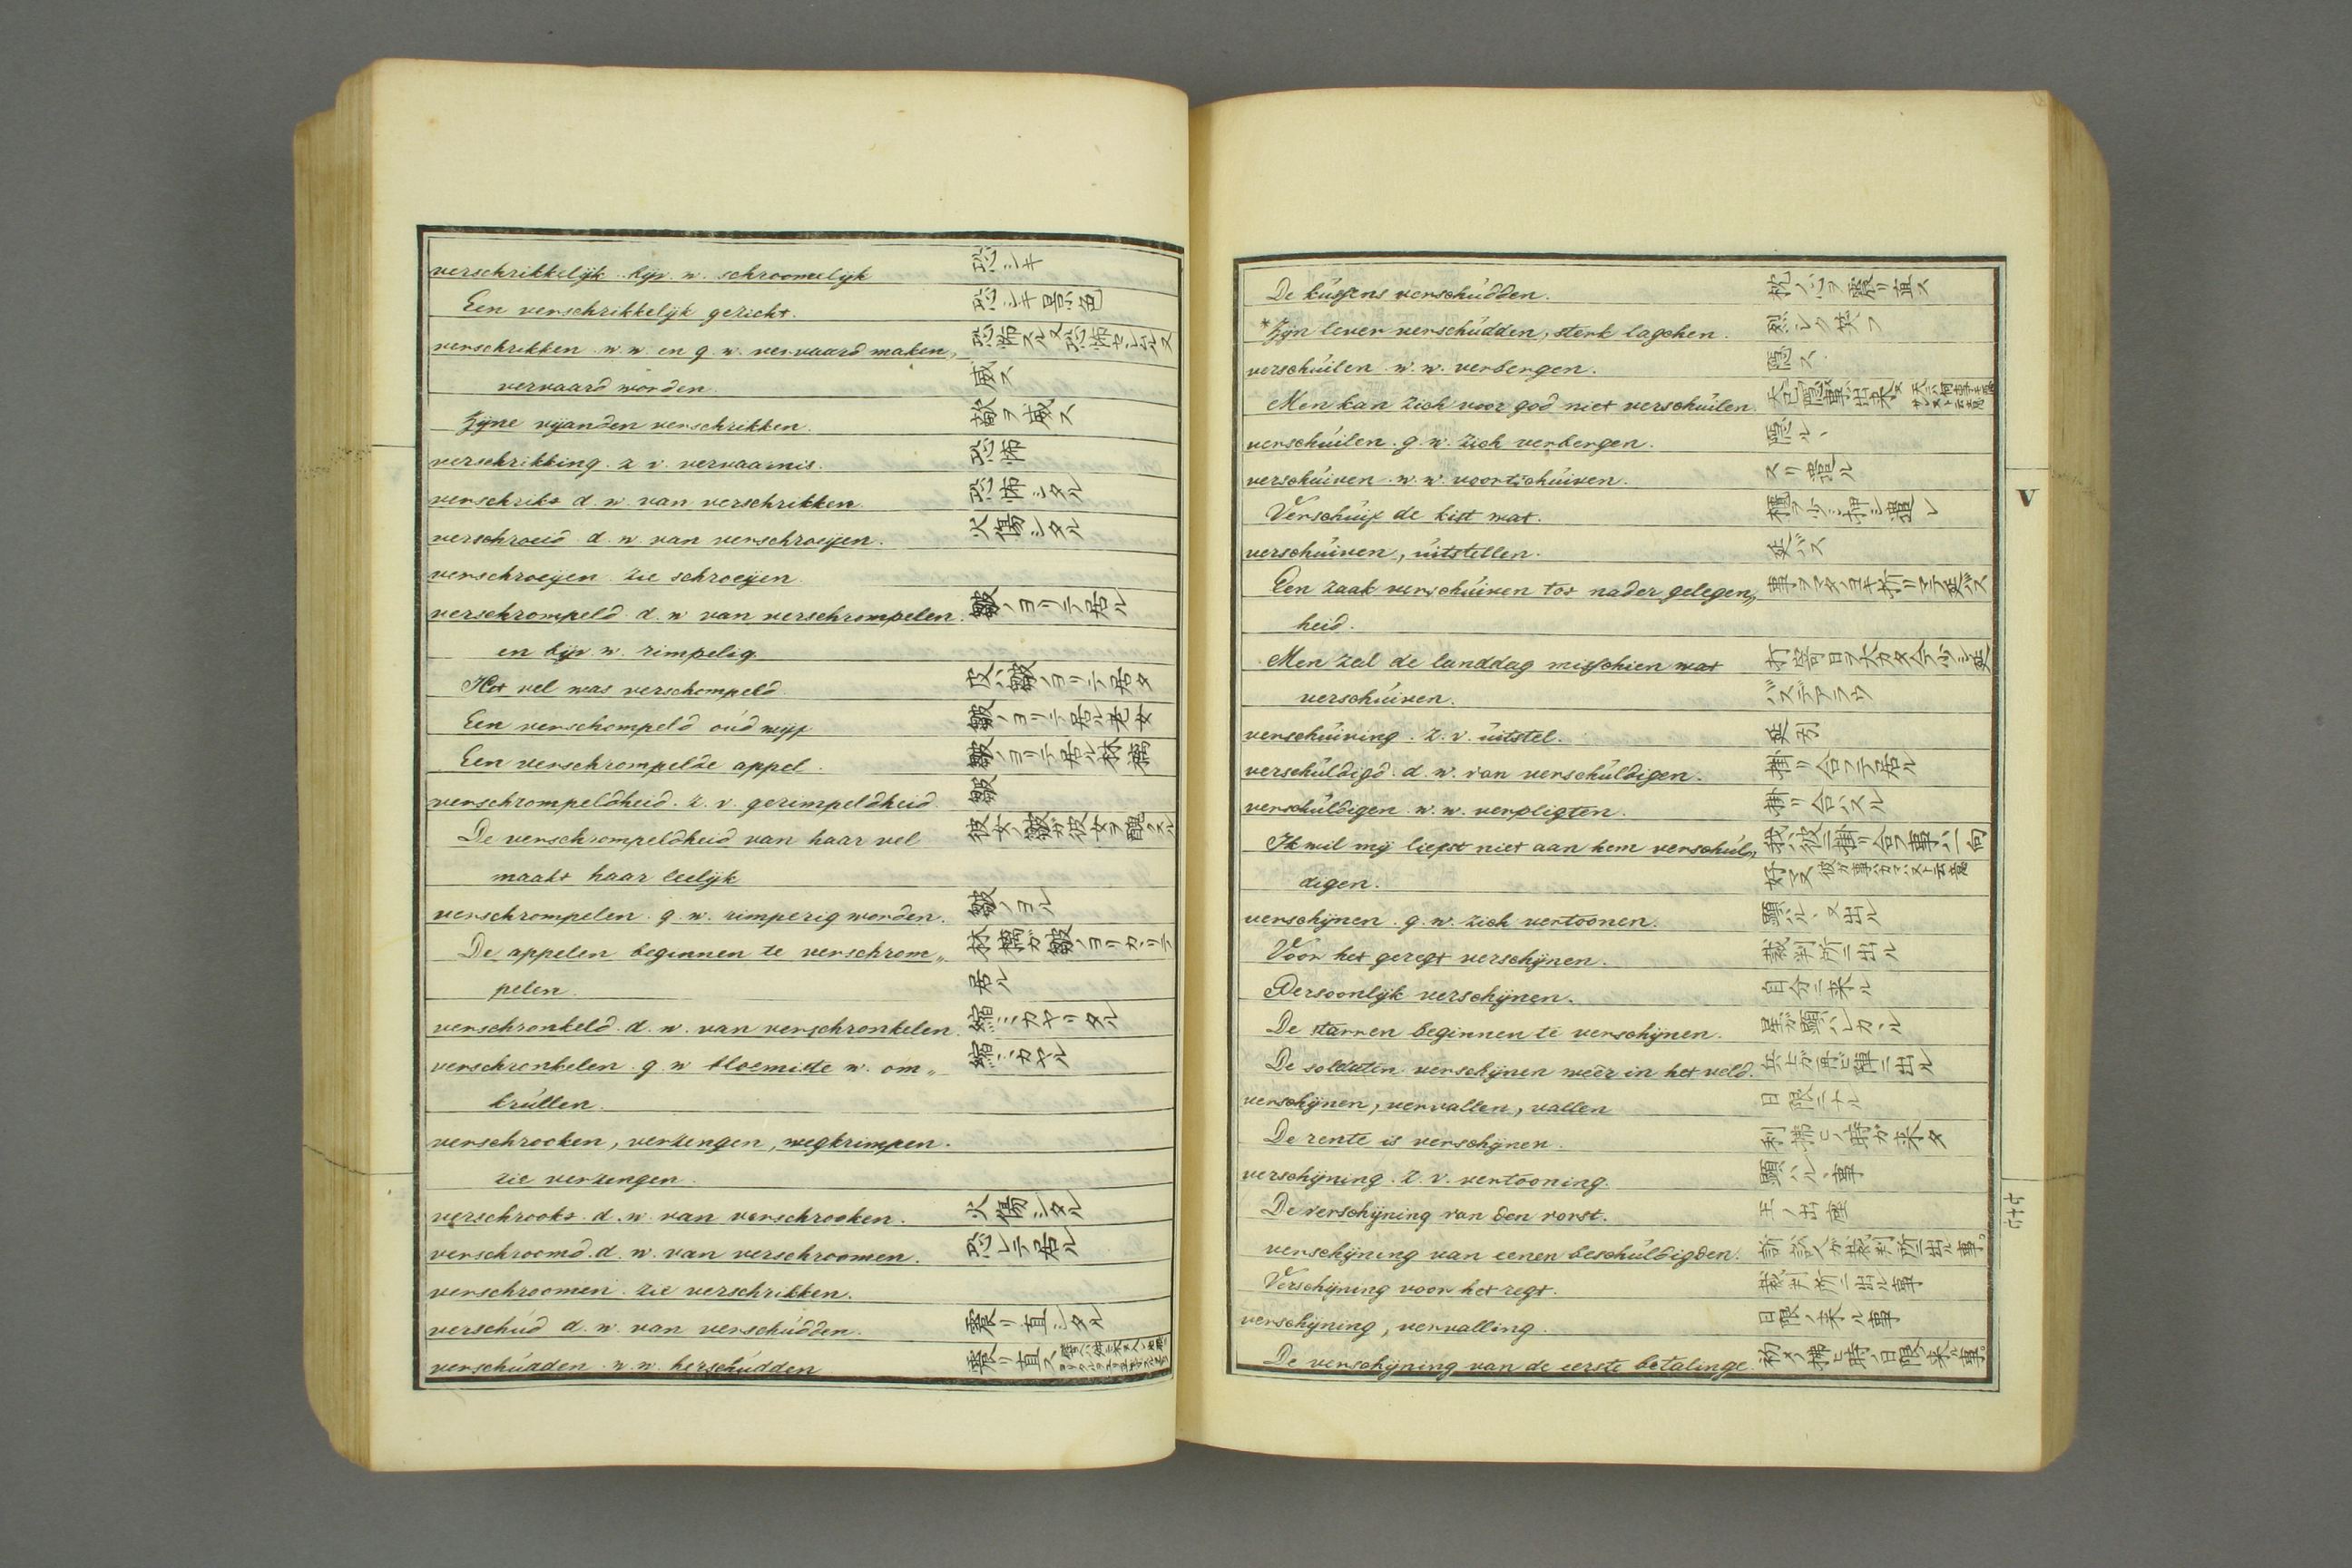 verschrikkelijk. bijv. w. schroomelijk 恐シキ
Een verschrikkelijk gezicht. 恐シキ景色
verschrikken. w. w. en g. w. vervaard maken, 恐怖スル又恐怖セシムル
vervaard worden. 威ス
Zijne vijanden verschrikken. 敵ヲ威ス
verschrikking. z. v. vervaarnis. 恐怖
verschrikt d. w. van verschrikken. 恐怖シタル
verschroeid. d. w. van verschroeijen. 火傷シタル
verschroeijen. zie schroeijen.
verschrompeld. d. w. van verschrompelen. 皺ノヨリテ居ル
en bijv. w. rimpelig.
Het vel was verschompeld. 皮ハ皺ノヨリテ居タ
Een verschompeld oud wijf 皺ノヨリテ居ル老女
Een verschrompelde appel. 皺ノヨリテ居ル林檎
verschrompeldheid. z. v. gerimpeldheid. 皺
De verschrompeldheid van haar vel 彼女ノ皺ガ彼女ヲ醜クスル
maakt haar leelijk
verschrompelen. g. w. rimperig worden. 皺ノヨル
De appelen beginnen te verschrom„ 林檎ガ皺ノヨリカヽリテ
pelen. 居ル
verschronkeld. d. w. van verschronkelen. 縮ミカヤリタル
verschronkelen. g. w. bloemiste w. om„ 縮ミカヤル
krullen.
verschrooken, verzengen, wegkrimpen.
zie verzengen.
verschrookt. d. w. van verschrooken. 火傷シタル
verschroomd. d. w. van verschroomen. 恐レテ居ル
verschroomen. zie verschrikken.
verschud d. w. van verschudden. 震リ直シタル
verschudden. w. w. herschudden 震リ直ス
De kussens verschudden. 枕ノ心ヲ震リ直ス
*Zijn lever verschudden, sterk lagchen. 烈シク笑フ
verschuilen. w. w. verbergen. 隠ス
Men kan zich voor god niet verschuilen.
verschuilen. g. w. zich verbergen. 隠ルヽ
verschuiven. w. w. voortschuiven. スリ遣ル
Verschuif de kist wat. 櫃ヲ少シ押シ遣レ
verschuiven, uitstellen. 延バス
Een zaak verschuiven tot nader gelegen„ 事ヲマタノヨキ折リマデ延バス
heid.
Men zal de landdag misschien wat
verschuiven. バスデアラウ
verschuiving. z. v. uitstel. 延引
verschuldigd. d. w. van verschuldigen. 掛リ合フテ居ル
verschuldigen. w. w. verpligten. 掛リ合ハスル
Ik wil mij liefst niet aan hem verschul„ 我ハ彼ニ掛リ合フ事ハ一向
digen. 好マヌ
verschijnen. g. w. zich vertoonen. 顕ハルヽ又出ル
Voor het geregt verschijnen. 裁判所ニ出ル
Persoonlijk verschijnen. 自分ニ来ル
De starren beginnen te verschijnen. 星ガ顕ハレカヽル
De soldaten verschijnen weêr in het veld. 兵士ガ再ビ陣ニ出ル
verschijnen, vervallen, vallen 日限ニナル
De rente is verschijnen. 利拂ヒノ時ガ来タ
verschijning. z. v. vertooning. 顕ハルヽ事
De verschijning van den vorst. 王ノ出座
verschijning van eenen beschuldigden.
Verschijning voor het regt. 裁判所ニ出ル事
verschijning, vervalling. 日限ノ来ル事
De verschijning van de eerste betalinge. 初メノ拂ヒ時ノ日限ノ来ル事。
V